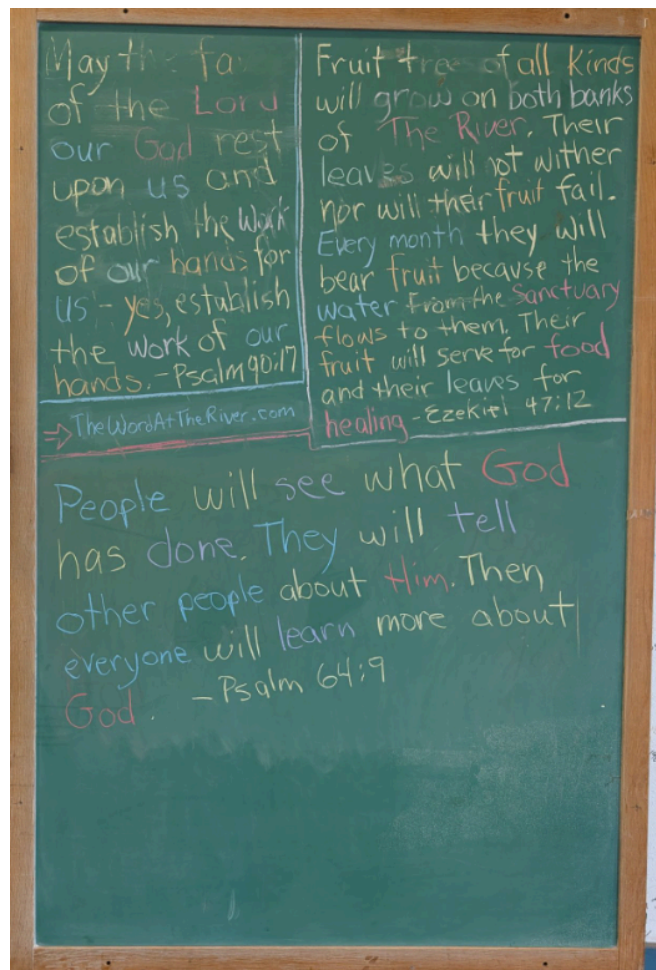 May the fa
of the Lord
our God rest
upon us and
establish the work
of our hands for
us - yes, establish
the work of our
hands. - Psalm 90:17
Fruit tree of all kinds
will grow on both banks
of The River. Their
leaves will not wither
nor will their fruit fail.
Every month they will
bear fruit because the
water from the Sanctuary
flows to them. Their
fruit will serve for food
and their leaves for
healing - Ezekiel 47:12
→ TheWordAtTheRiver.com
People will see what God
has done. They will tell
other people about Him. Then
everyone will learn more about
God. - Psalm 64:9